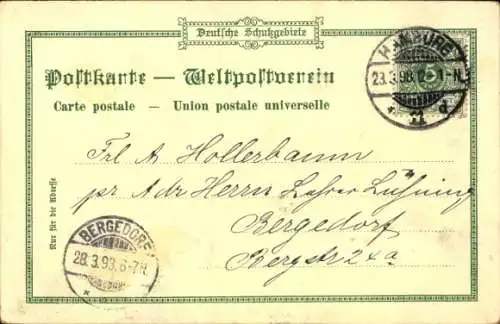 Deutsche Schutzgebiete
Postkarte — Weltpostverein
Carte postale — Union postale universelle
HAMBURG
23.3.98.12-1-N.
* 11 d
Frl A Hollerbaum
pr Adr Herrn Lehrer Lühning
Bergedorf
Bergstr 2a
Nur für die Adresse
BERGEDORF
28.3.98.6-7N.
*